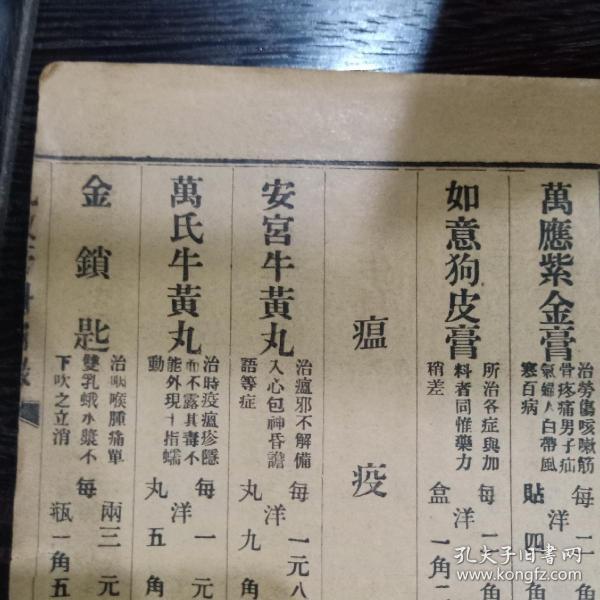 萬應紫金膏
治勞傷咳嗽筋
骨疼痛男子疝
氣婦人白帶風
寒百病
每
貼
洋二
四角
如意狗皮膏
所治各症與加
料者同惟藥力
稍差
每
盒
洋二
一角
瘟疫
安宮牛黃丸
治瘟邪不解備
入心包神昏譫
語等症
每
丸
洋一元八
九角
萬氏牛黃丸
治時疫瘟疹隱
而不露其毒不
能外現十指蠕
動
每
丸
洋一元
五角
金鎖匙
治咽喉腫痛單
雙乳蛾水漿不
下吹之立消
每
兩三元
瓶一角五
孔夫子旧書网
www.kongfz.com